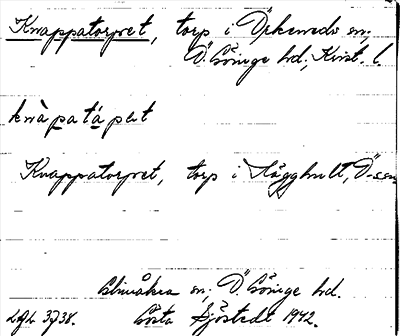 Knappatorpet, torp i Örkeneds sn;
Ö. Göinge hd; Krist. l.
knàpatårpət
Knappatorpet, torp i Hägghult, Ö-sen
Glimåkra sn; Ö Göinge hd.
Gösta Sjöstedt 1942.